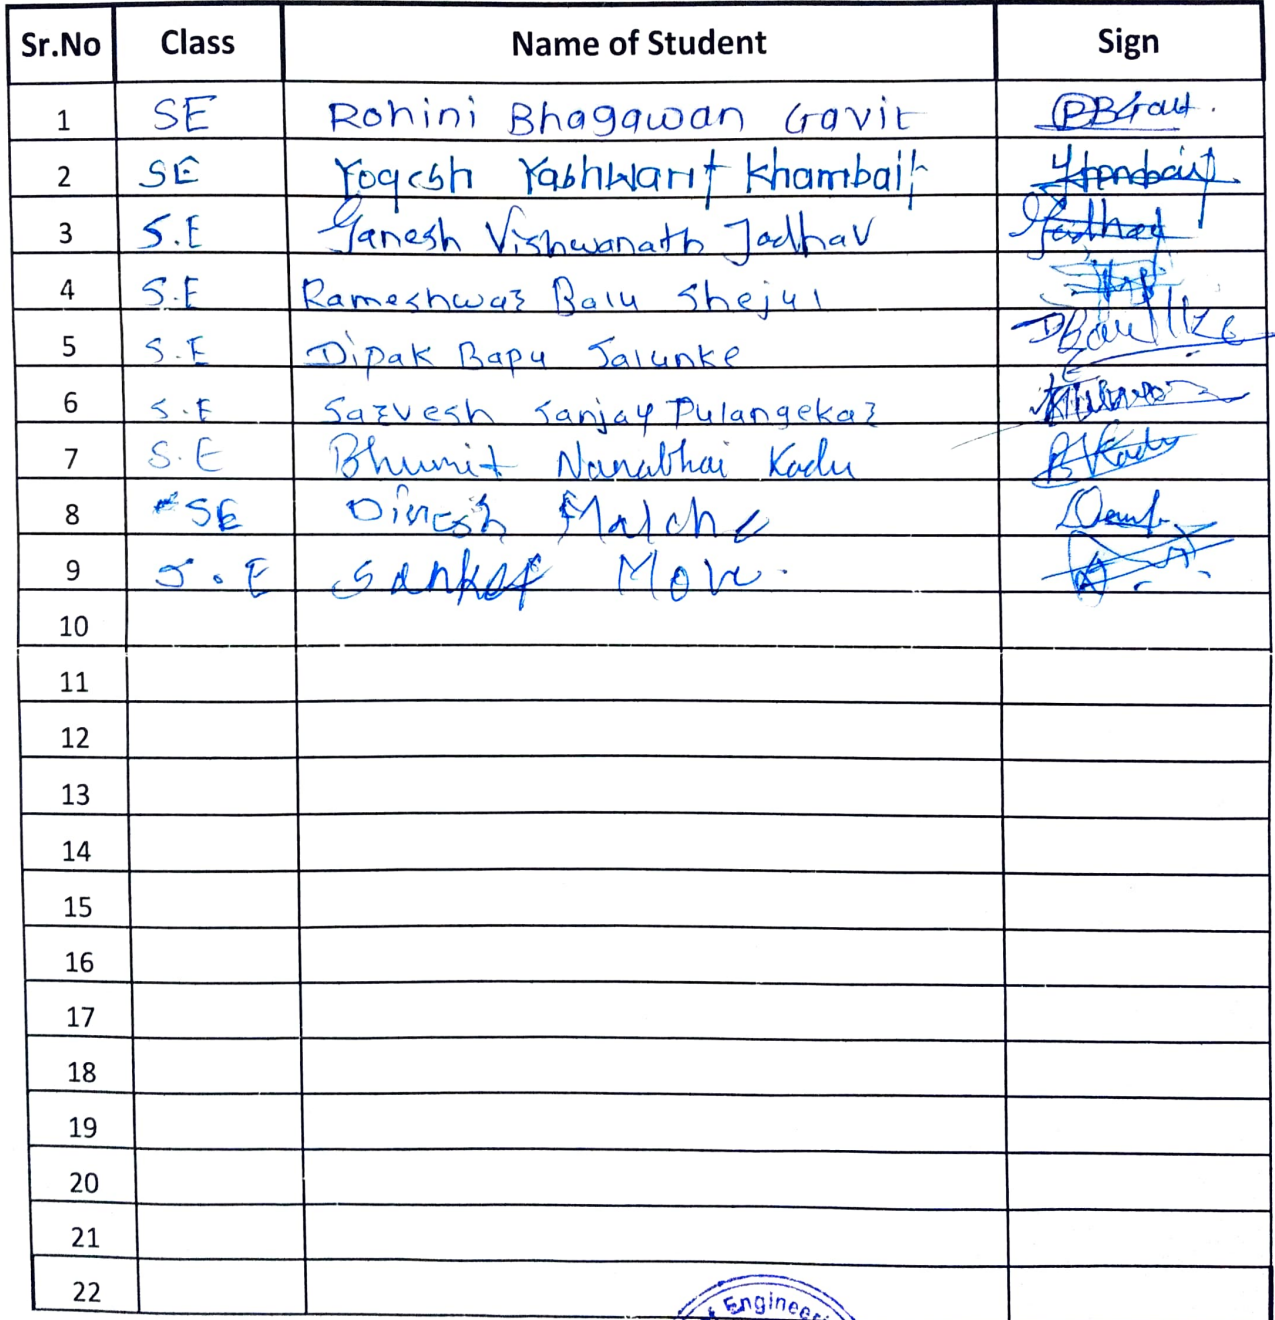 Sr.No Class Name of Student Sign
1 SE Rohini Bhagawan Gavit
2 SE Yogesh Yashwant Khambait
3 S.E Ganesh Vishwanath Jadhav Jadhav
4 S.E Rameshwar Balu Shejul
5 S.E Dipak Bapu Salunke
6 S.E Sarvesh Sanjay Pulangekar
7 S.E Bhumit Nanabhai Kadu BKadu
8 SE Dinesh Malche
9 S.E Sanket More
10
11
12
13
14
15
16
17
18
19
20
21
22